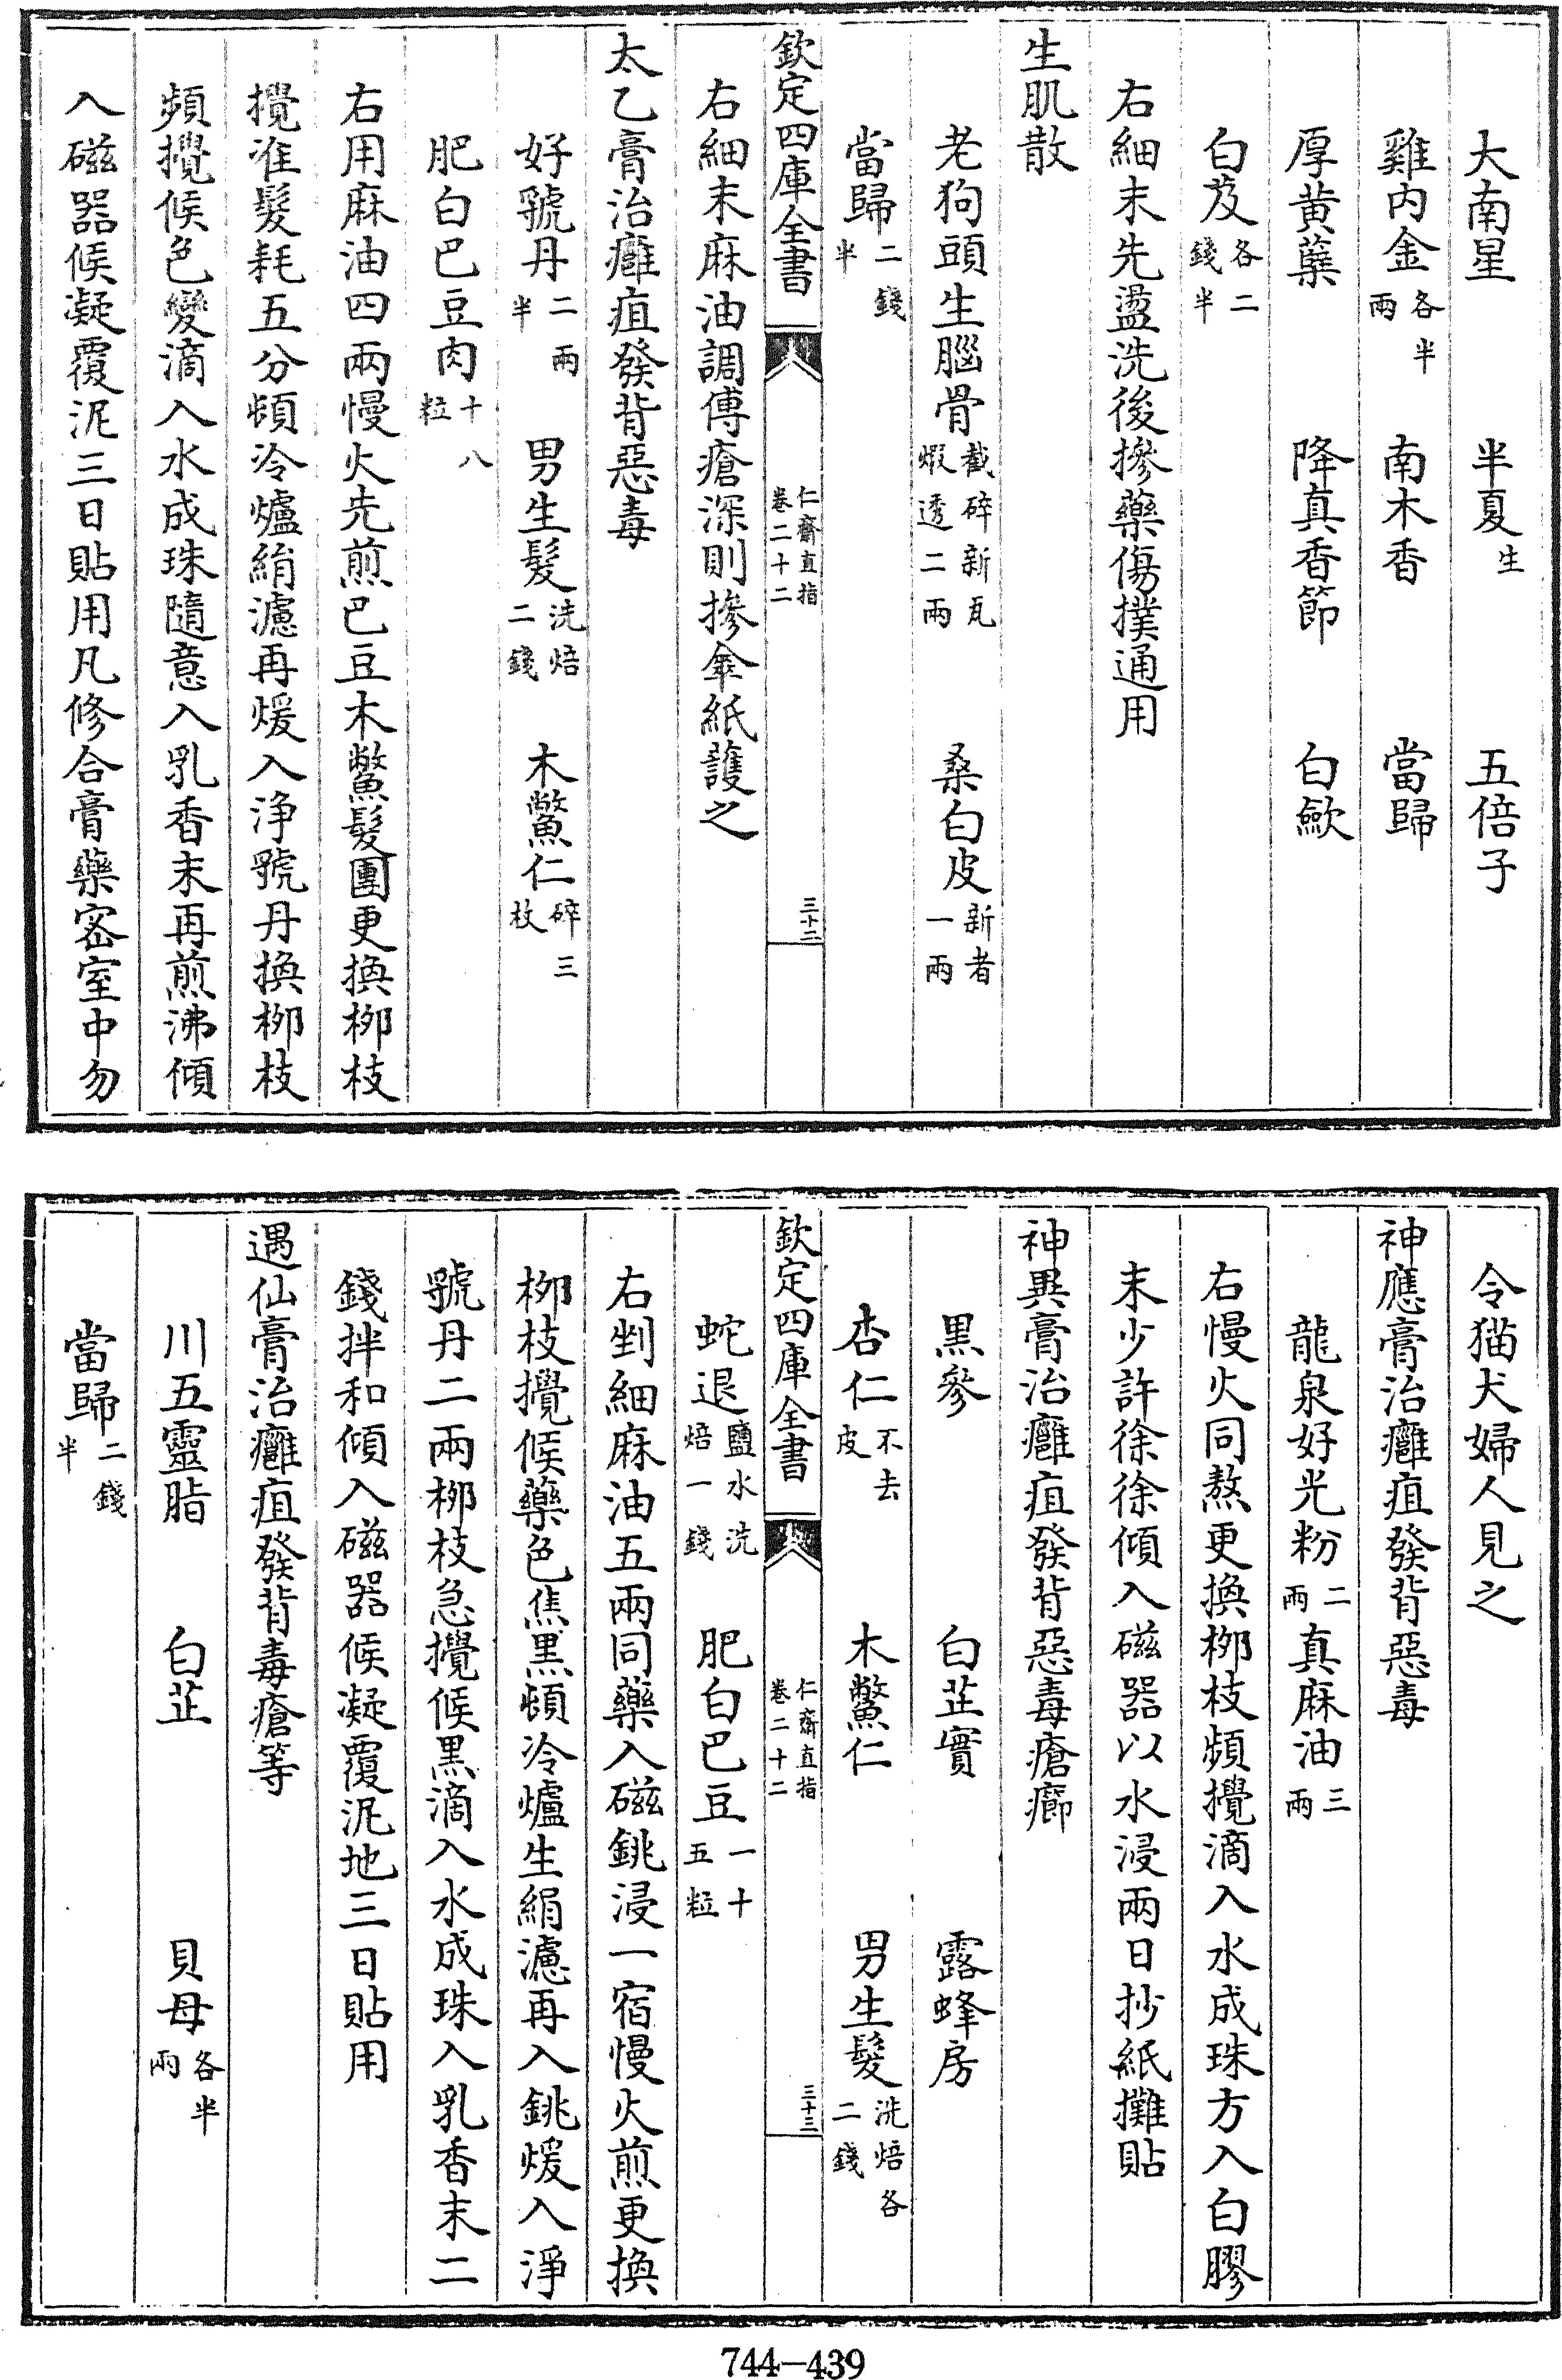 大南星 半夏生 五倍子
雞内金各半兩 南木香 當歸
厚黄蘗 降真香節 白歛
白芨各二錢半
右細末先盪洗後摻藥傷撲通用
生肌散
老狗頭生腦骨截碎新瓦煆透二兩 桑白皮新者一兩
當歸二錢半
欽定四庫全書 仁齋直指卷二十二 三十二
右細末麻油調傅瘡深則摻傘紙護之
太乙膏治癰疽發背惡毒
好號丹二兩半 男生髮洗焙二錢 木鱉仁碎三枚
肥白巴豆肉十八粒
右用麻油四兩慢火先煎巴豆木鱉髮團更換栁枝
攪准髮耗五分頓冷爐絹濾再煖入浄號丹換栁枝
頻攪候色變滴入水成珠隨意入乳香末再煎沸傾
入磁器候凝覆泥三日貼用凡修合膏藥密室中勿
令猫犬婦人見之
神應膏治癰疽發背惡毒
龍泉好光粉二兩真麻油三兩
右慢火同熬更換栁枝頻攪滴入水成珠方入白膠
末少許徐徐傾入磁器以水浸兩日抄紙攤貼
神異膏治癰疽發背惡毒瘡癤
黒參 白芷實 露蜂房
杏仁不去皮 木鱉仁 男生髮洗焙各二錢
欽定四庫全書 仁齋直指卷二十二 三十三
蛇退鹽水洗焙一錢 肥白巴豆一十五粒
右剉細麻油五兩同藥入磁銚浸一宿慢火煎更換
栁枝攪候藥色焦黒頓冷爐生絹濾再入銚煖入淨
號丹二兩栁枝急攪候黒滴入水成珠入乳香末二
錢拌和傾入磁器候凝覆泥地三日貼用
遇仙膏治癰疽發背毒瘡等
川五靈脂 白芷 貝母各半兩
當歸二錢半
744-439